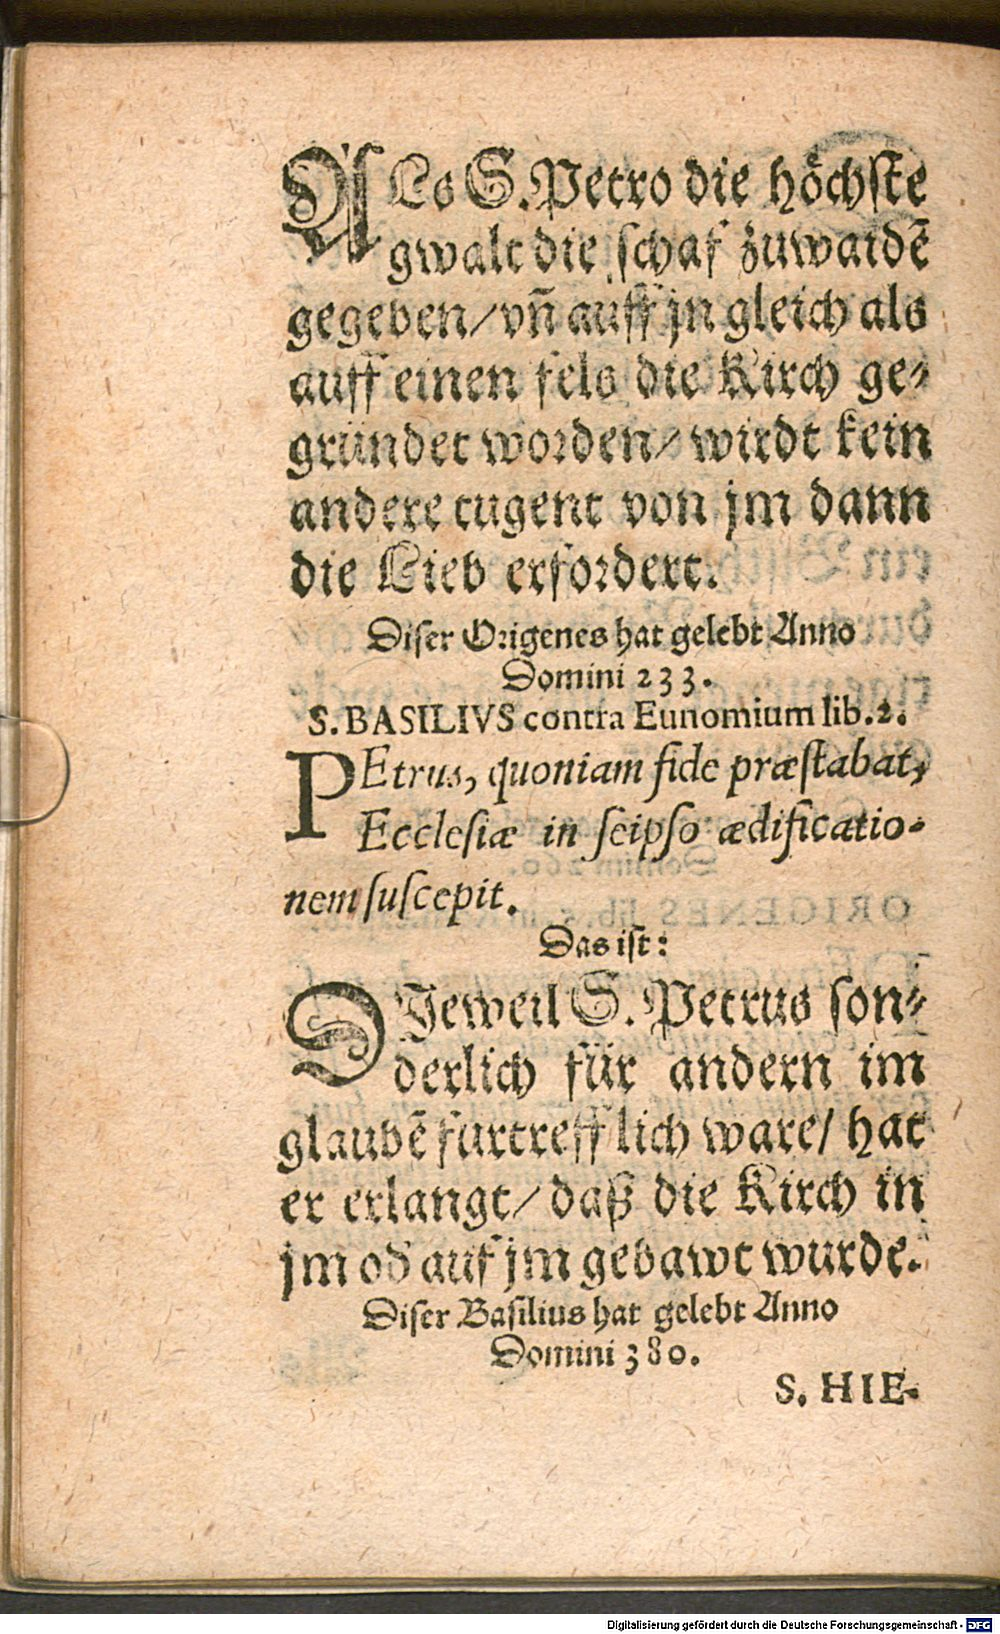 ALs S. Petro die höchste
gwalt die schaf zuwaidẽ
gegeben/ vñ auff jn gleich als
auff einen fels die Kirch ge-
gründet worden/ wirdt kein
andere tugent von jm dann
die Lieb erfordert.
Diser Origenes hat gelebt Anno
Domini 233.
S. BASILIVS contra Eunomium lib. 2.
PEtrus, quoniam fide præstabat,
Ecclesiæ in seipso ædificatio-
nem suscepit.
Das ist:
DJeweil S. Petrus son-
derlich für andern im
glaubẽ furtrefflich ware/ hat
er erlangt/ daß die Kirch in
jm od auf jm gebawt wurde.
Diser Basilius hat gelebt Anno
Domini 380.
S. HIE-
Digitalisierung gefördert durch die Deutsche Forschungsgemeinschaft - DFG